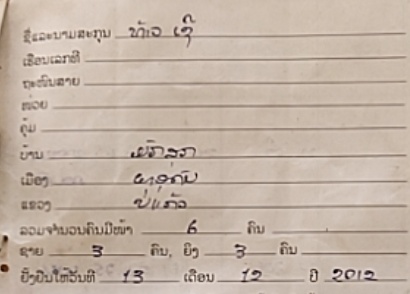 ຊື່ແລະນາມສະກຸນ ທ້າວ
ເຮືອນເລກທີ
ຖະໜົນສາຍ
ໜ່ວຍ
ຄຸ້ມ
ບ້ານ
ເມືອງ
ແຂວງ ບໍ່ແກ້ວ
ລວມຈຳນວນຄົນມີໜ້າ 6 ຄົນ
ຊາຍ 3 ຄົນ, ຍິງ 3 ຄົນ
ຢັ້ງຢືນໃຫ້ວັນທີ 13 ເດືອນ 12 ປີ 2012